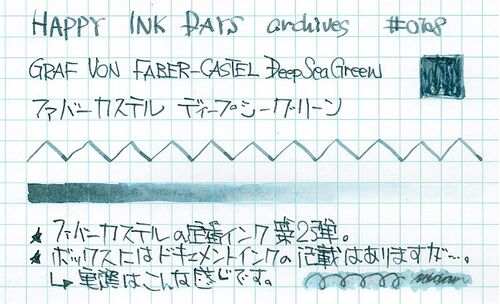 HAPPY INK DAYS archives #0768
GRAF VON FABER-CASTEL DeepSeaGreen
ファバーカステル ディープシーグリーン
★ ファバーカステルの定番インク 第2弾。
★ ボックスにはドキュメントインクの記載はありますが…。
↳ 実際はこんな感じです。